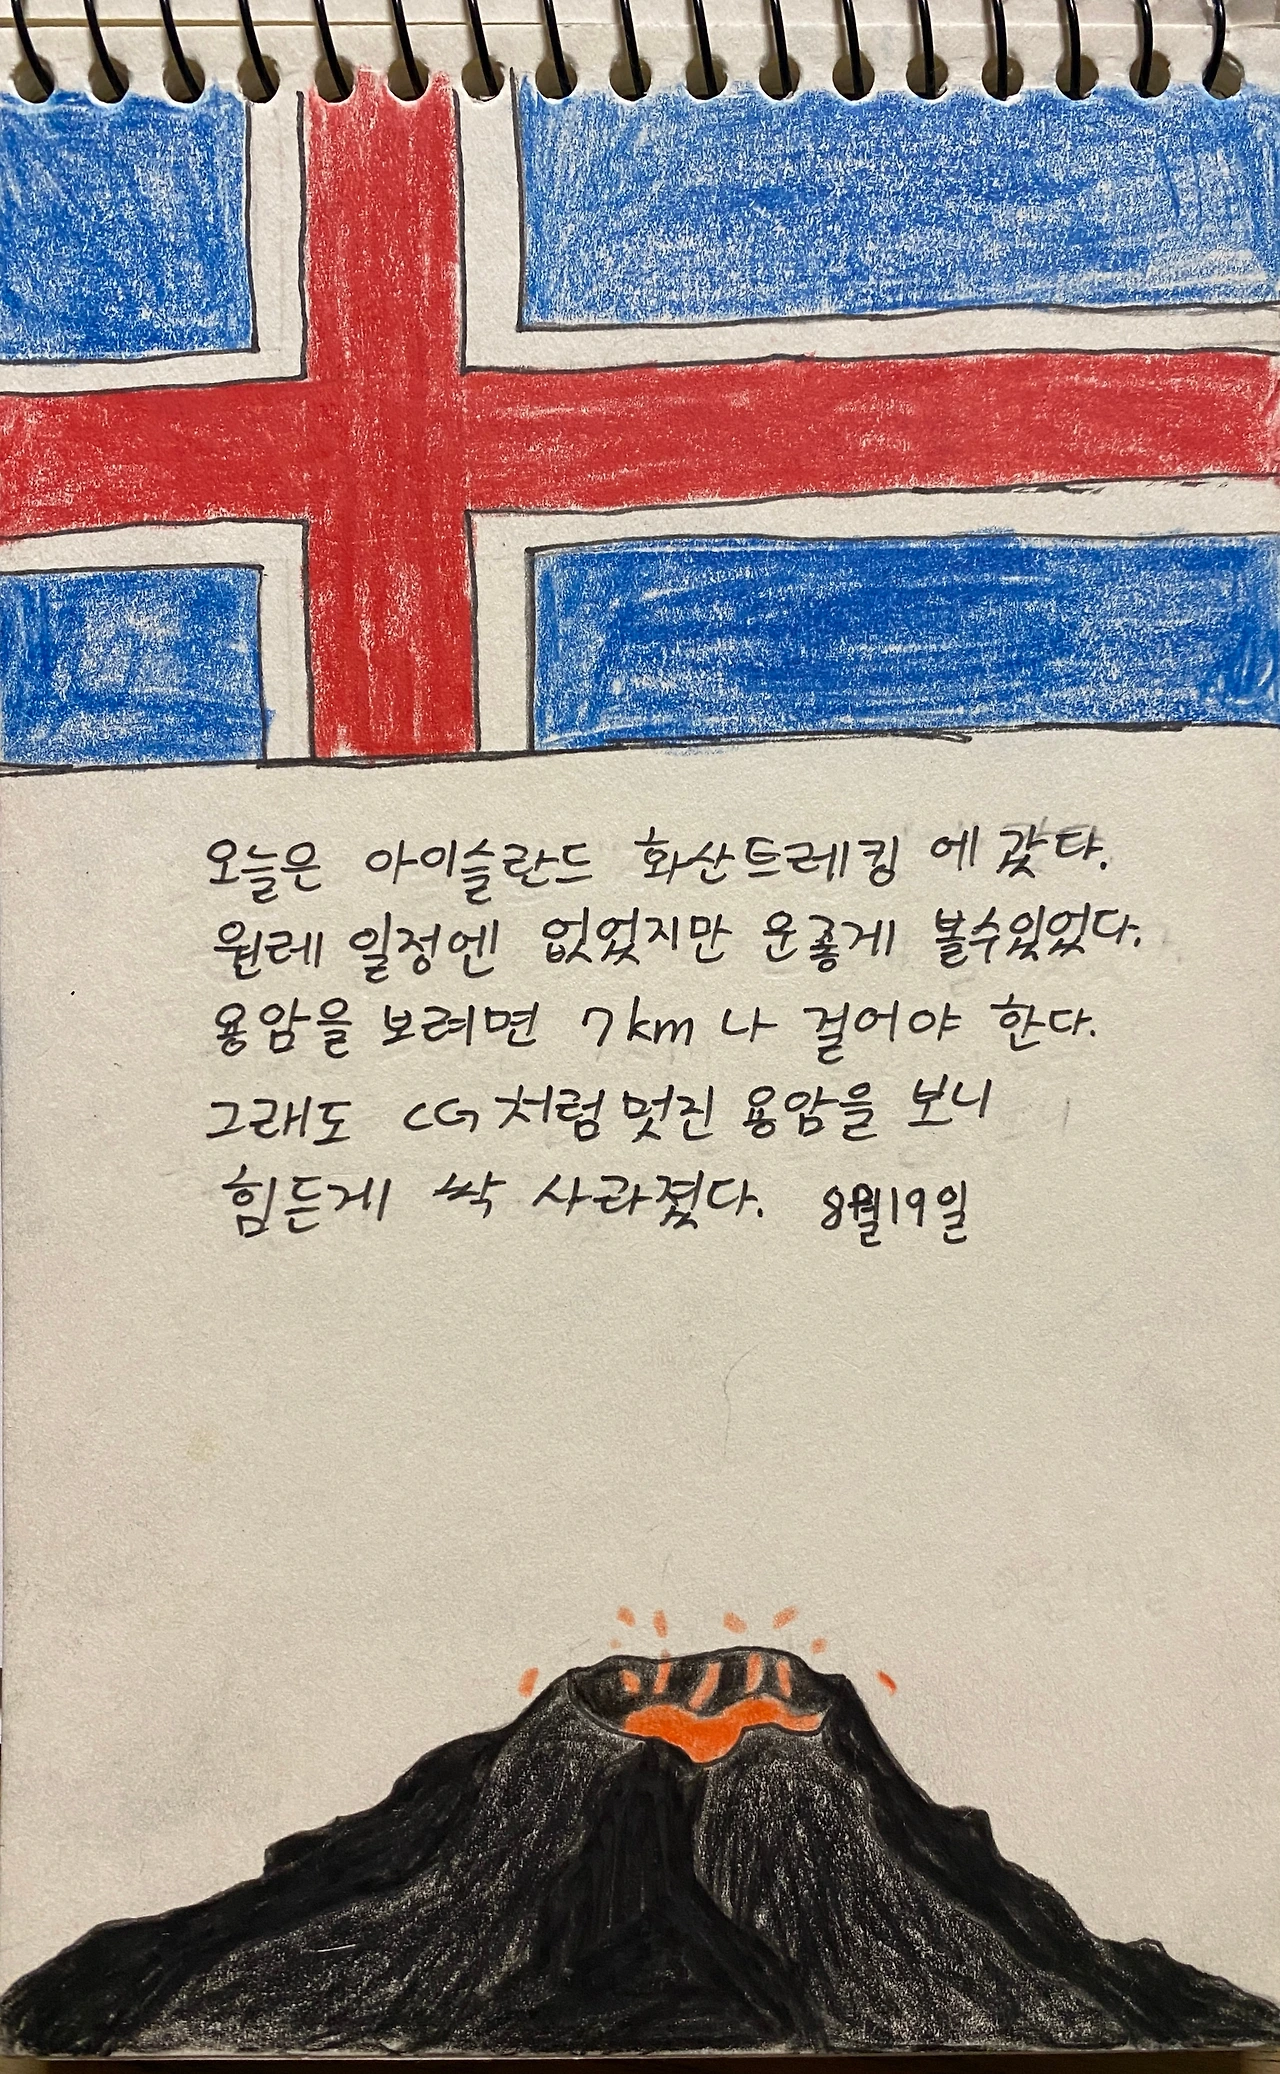 오늘은 아이슬란드 화산트레킹 에 갔다.
원레 일정엔 없었지만 운좋게 볼수있었다.
용암을 보려면 7km 나 걸어야 한다.
그래도 CG처럼 멋진 용암을 보니
힘든게 싹 사라졌다. 8월19일